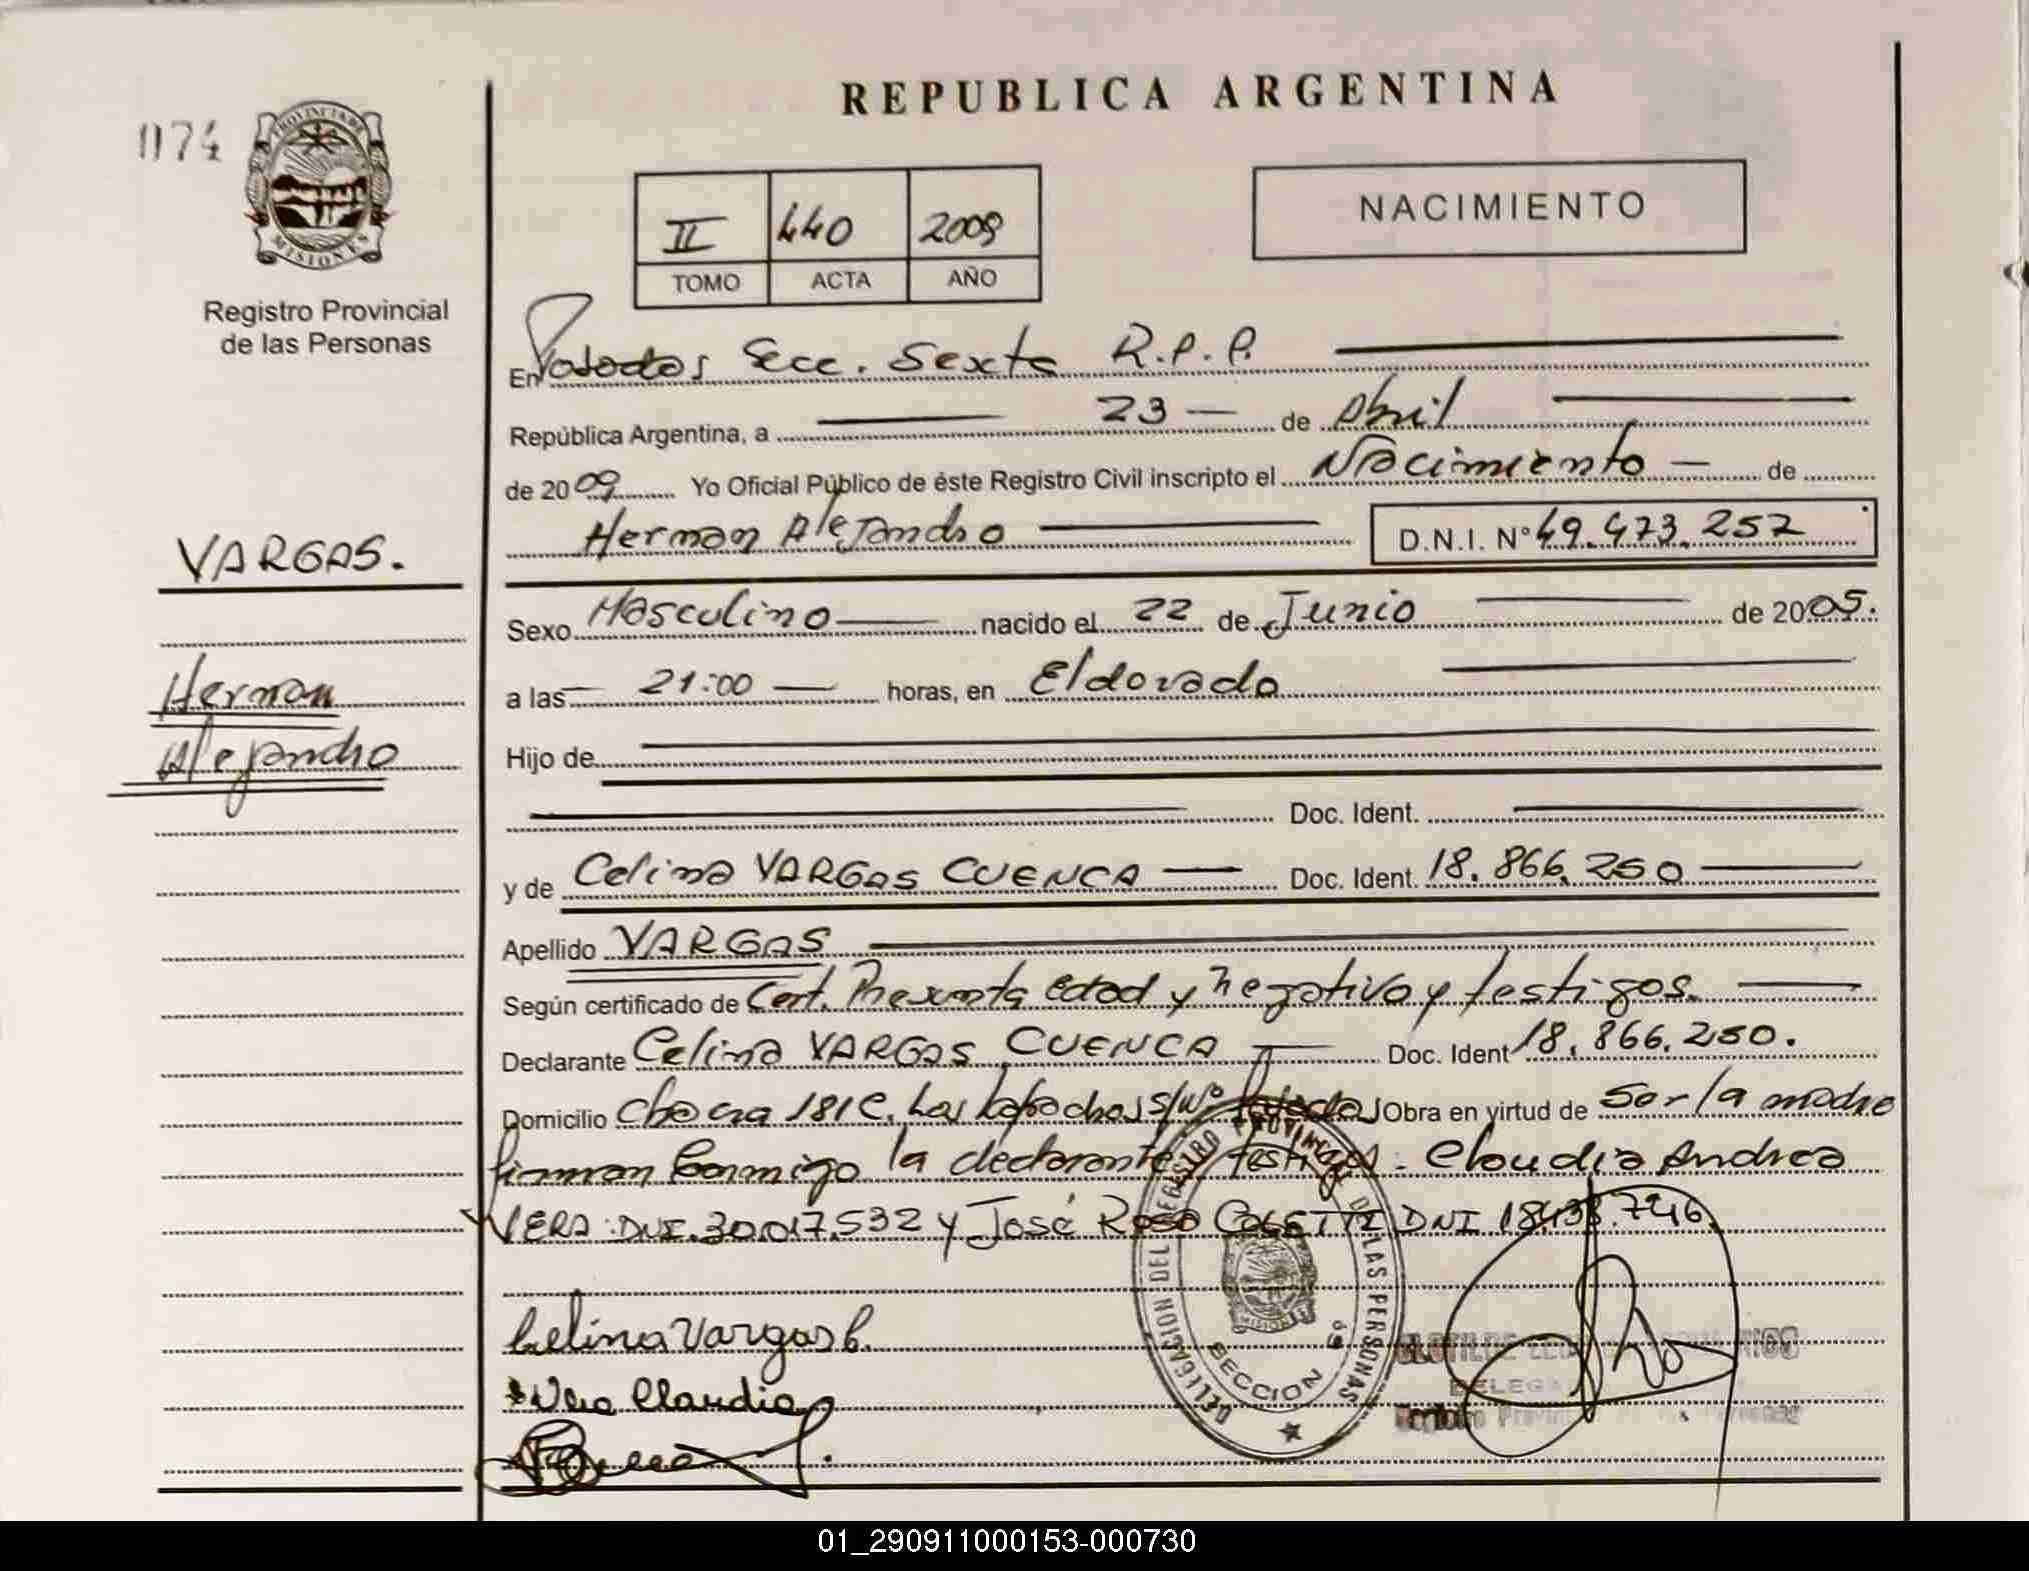 REPUBLICA ARGENTINA
1174
PROVINCIA DE MISIONES
Registro Provincial
de las Personas
II 440 2009
TOMO ACTA AÑO
NACIMIENTO
En Posadas Secc. Sexta R.P.P.
República Argentina, a 23 de Abril
de 2009 Yo Oficial Público de éste Registro Civil inscripto el Nacimiento de
Hernan Alejandro D.N.I. N° 49.473.257
VARGAS.
Hernan
Alejandro
Sexo Masculino nacido el 22 de Junio de 2005.
a las 21:00 horas, en Eldorado
Hijo de
Doc. Ident.
y de Celina VARGAS CUENCA Doc. Ident. 18.866.250
Apellido VARGAS
Según certificado de Cert. Presunta edad y negativo y testigos.
Declarante Celina VARGAS CUENCA Doc. Ident 18.866.250.
Domicilio Chacra 181 C. Los Lapachos s/nº Posadas Obra en virtud de Ser la madre
firman conmigo la declarante y testigos: Claudia Andrea
VERA: DNI. 30.017.532 y José Roso DNI 18.438.746.
Celina Vargas C.
Vera Claudia
DELEGACION DEL REGISTRO PROVINCIAL DE LAS PERSONAS
MISIONES
SECCION 6º
CLOTILDE
DELEGA
Registro Provin
01_290911000153-000730